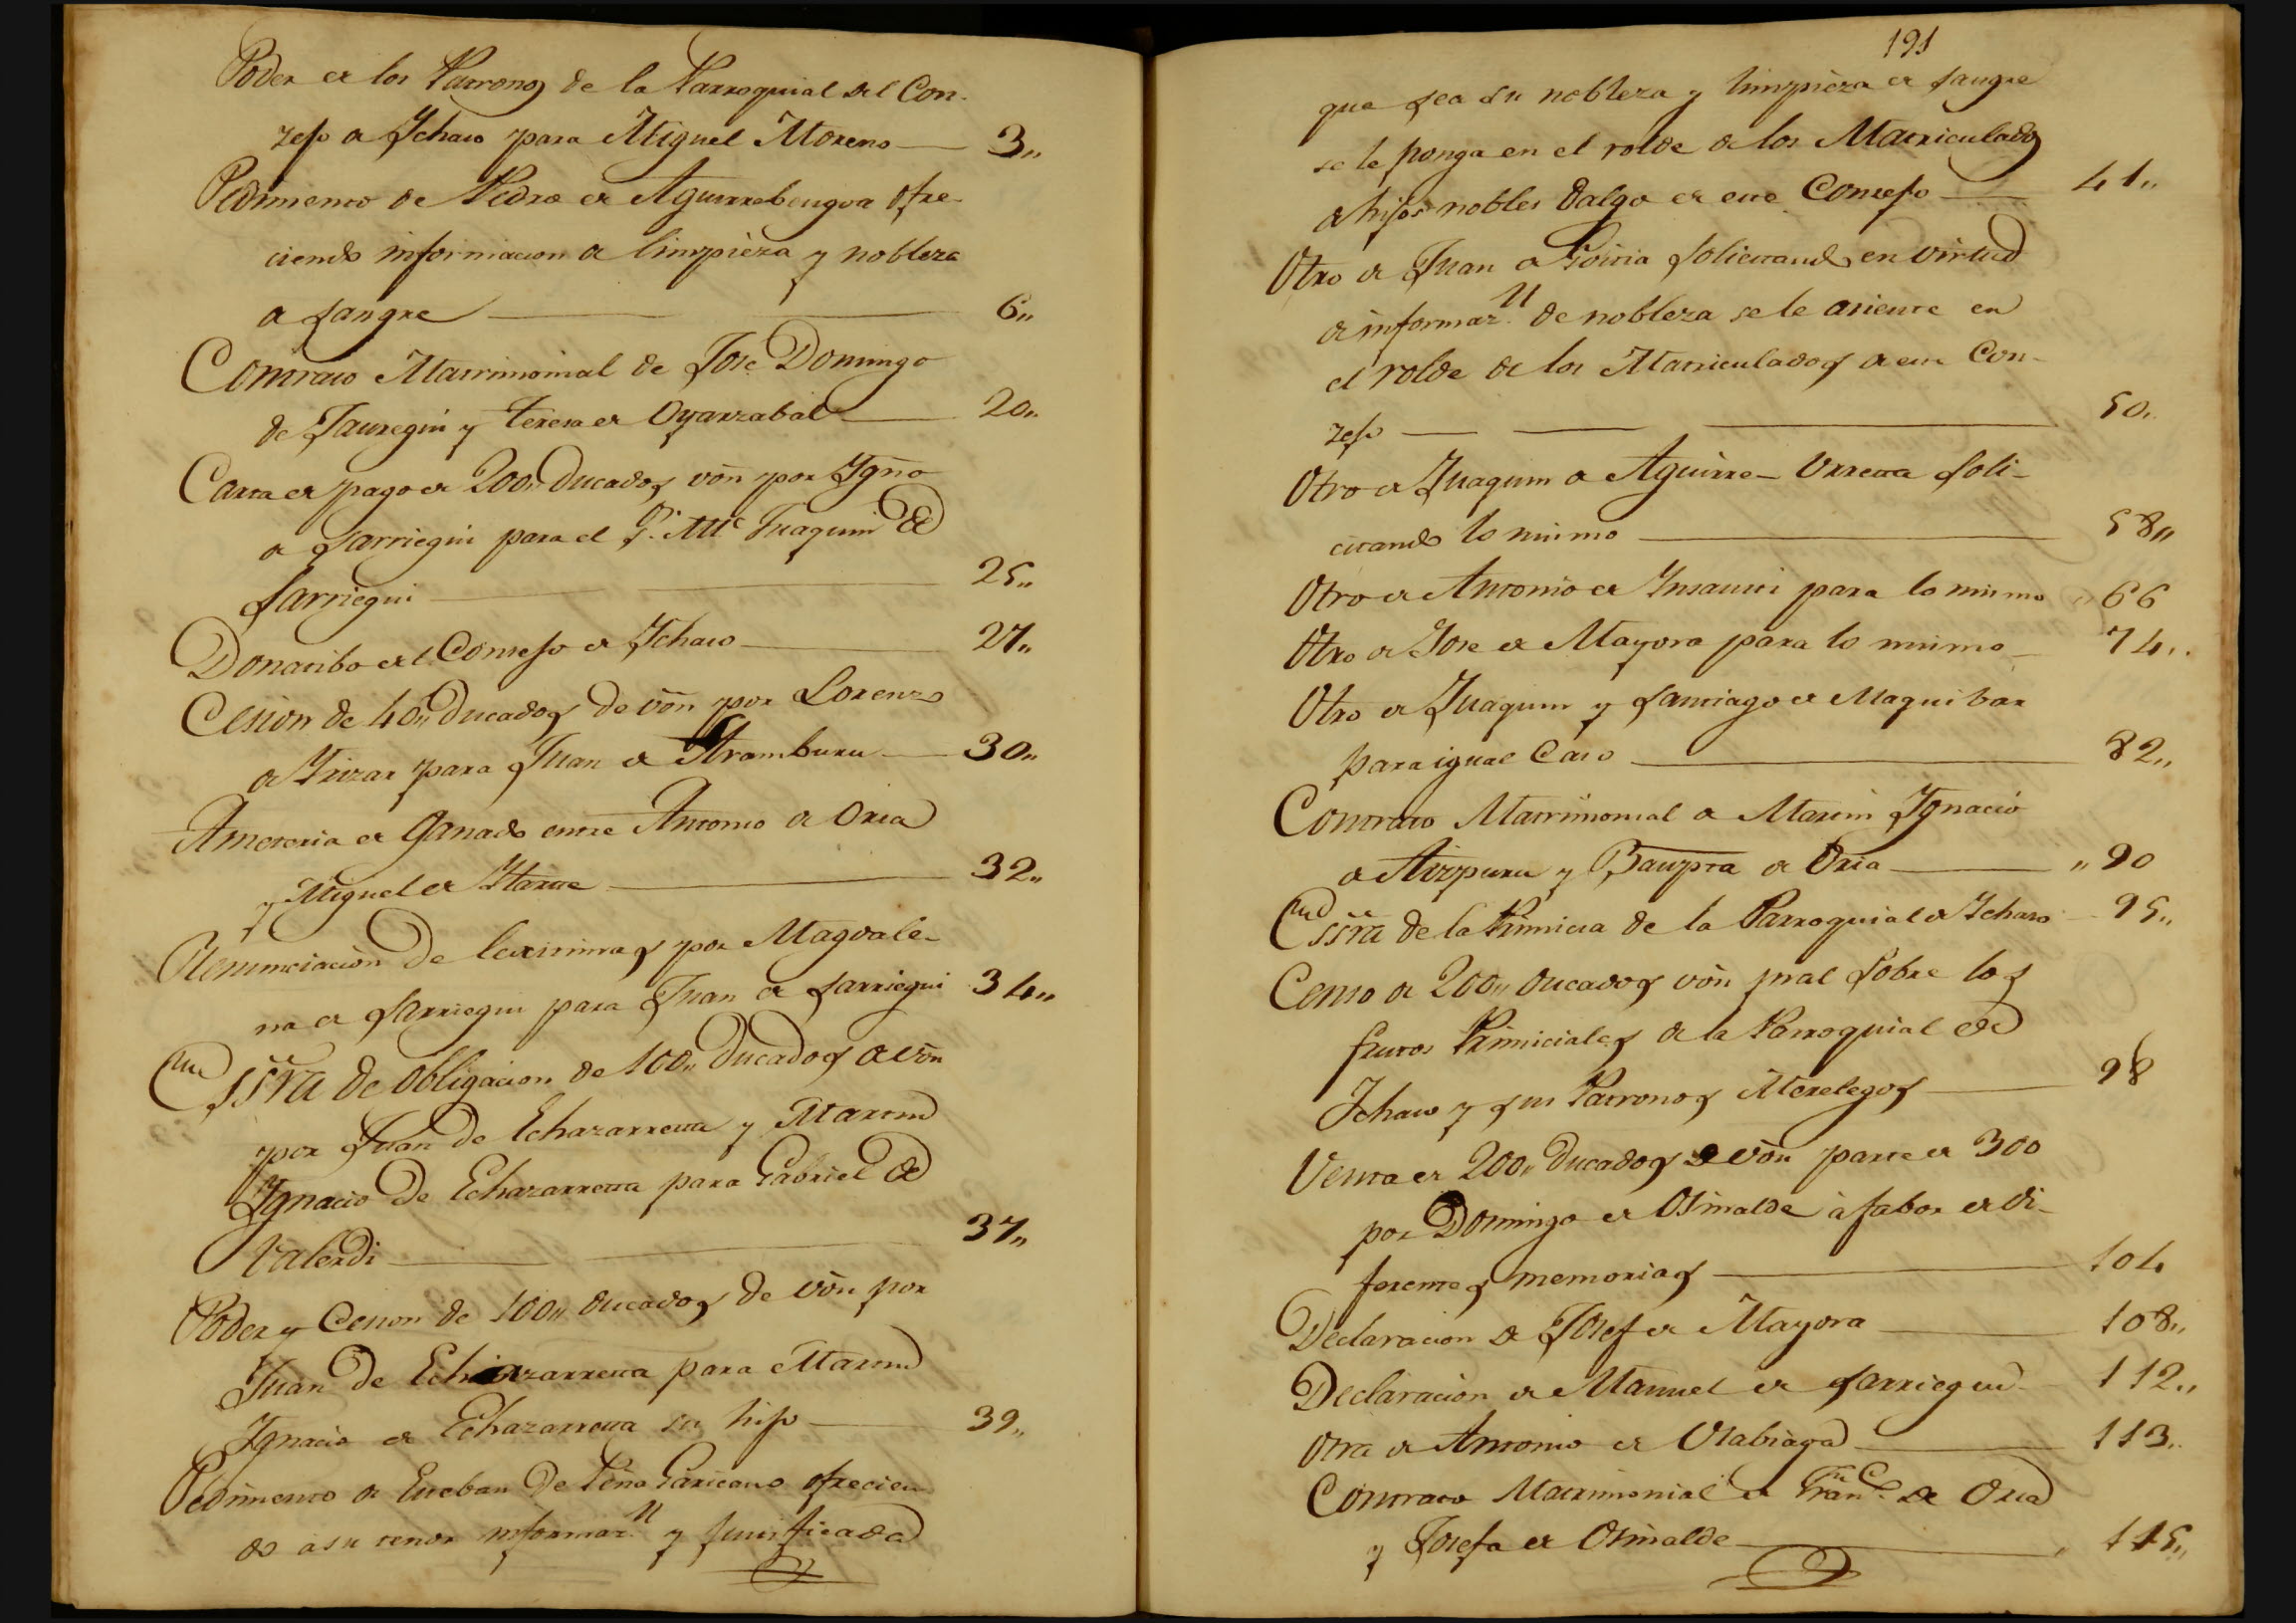 Poder de los Patronos de la Parroquial del Con-
zejo de Ichaso para Miguel Moreno — 3,,
Pedimento de Pedro de Aguirrebengoa ofre-
ciendo informacion de limpieza y nobleza
de sangre — 6,,
Contrato Matrimonial de José Domingo
de Jauregui y Teresa de Oyarzabal — 20,,
Carta de pago de 200,, Ducados von por Ygno
de Sarriegui para el P. Mro Juaquin de
Sarriegui — 25,,
Donatibo del Consejo de Ychaso — 27,,
Cesion de 40,, Ducados de von por Lorenzo
de Yrizar para Juan de Aramburu — 30,,
Ameteria de Ganado entre Antonio de Oria
y Miguel de Ytarte — 32,,
Renunciación de lexitimas por Magdale-
na de Sarriegui para Juan de Sarriegui 34,,
Essra de obligacion de 100,, Ducados de von
por Juan de Echazarreta y Martin
Ygnacio de Echazarreta para Gabriel de
Valerdi — 37,,
Poder y Cesion de 100,, ducados de von por
Juan de Echazarreta para Martin
Ygnacio de Echazarreta su hijo — 39,,
Pedimento de Esteban de Teña Garicano ofrecien
do a su tenor informazn y justificada
191
que sea su nobleza y limpieza de sangre
se le ponga en el rolde de los Matriculados
de hijos nobles dalgo de este Consejo — 41,,
Otro de Juan de Goitia solicitando en virtud
de informazn de nobleza se le asiente en
el rolde de los Matriculados de este Con-
zejo — 50,,
Otro de Juaquin de Aguirre-Urreta soli-
citando lo mismo — 58,,
Otro de Antonio de Ynsausti para lo mismo ,, 66
Otro de Jose de Mayora para lo mismo — 74,,
Otro de Juaquin y Santiago de Maquibar
para igual Caso — 82,,
Contrato Matrimonial de Martin Ygnacio
de Aizpuru y Baupta de Oria — ,, 90
Essra de la Primicia de la Parroquial de Ychaso — 95,,
Censo de 200,, ducados von pral sobre los
frutos Primiciales de la Parroquial de
Ichaso y sus Patronos Merelegos — 98
Venta de 200,, Ducados de von parte de 300
por Domingo de Osinalde à fabor de di-
ferentes memorias — 104
Declaracion de Josef de Mayora — 108,,
Declaracion de Manuel de Sarriegui — 112,,
Otra de Antonio de Olabiaga — 113,,
Contrato Matrimonial de Franco de Oria
y Josefa de Osinalde — 115,,